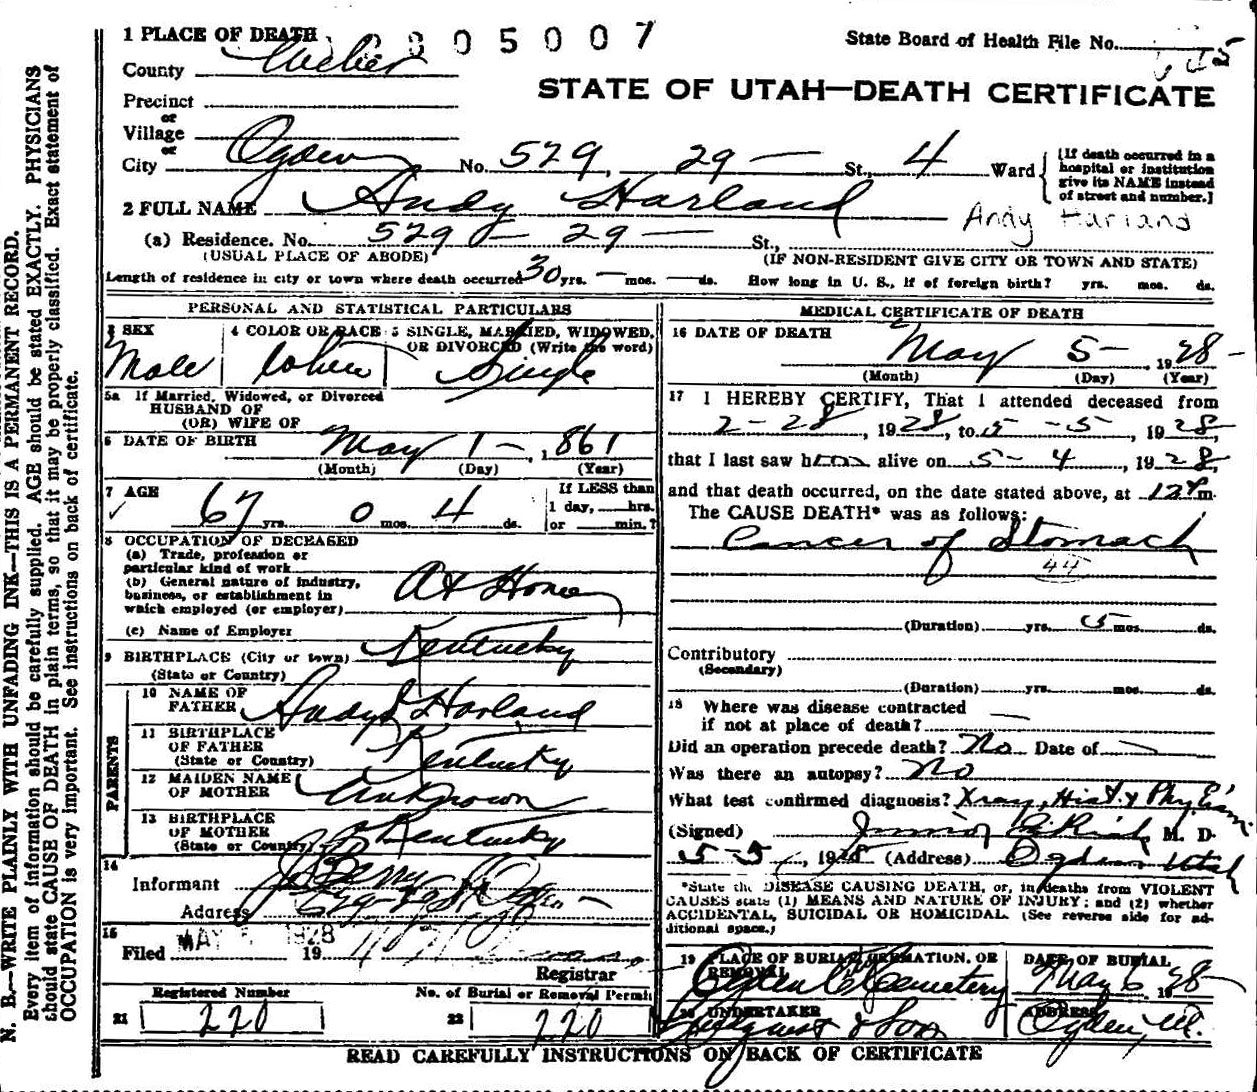 1 PLACE OF DEATH 2805007
State Board of Health File No.
County Weber
STATE OF UTAH—DEATH CERTIFICATE
Precinct
or
Village
or
City Ogden No. 529 29 — St., 4 Ward
[If death occurred in a hospital or institution give its NAME instead of street and number.]
2 FULL NAME Andy Harland
Andy Harland
(a) Residence. No. 529 — 29 — St.,
(USUAL PLACE OF ABODE) (IF NON-RESIDENT GIVE CITY OR TOWN AND STATE)
Length of residence in city or town where death occurred 30 yrs. — mos. — ds. How long in U. S., if of foreign birth? yrs. mos. ds.
PERSONAL AND STATISTICAL PARTICULARS
3 SEX 4 COLOR OR RACE 5 SINGLE, MARRIED, WIDOWED, OR DIVORCED (Write the word)
Male White Single
5a If Married, Widowed, or Divorced
HUSBAND OF
(OR) WIFE OF
6 DATE OF BIRTH May 1 — , 1861
(Month) (Day) (Year)
7 AGE If LESS than
1 day, hrs.
67 yrs. 0 mos. 4 ds. or min.?
8 OCCUPATION OF DECEASED
(a) Trade, profession or
particular kind of work
(b) General nature of industry,
business, or establishment in
which employed (or employer) At Home
(c) Name of Employer
9 BIRTHPLACE (City or town) Kentucky
(State or Country)
PARENTS
10 NAME OF
FATHER Andy Harland
11 BIRTHPLACE
OF FATHER
(State or Country) Kentucky
12 MAIDEN NAME
OF MOTHER Unknown
13 BIRTHPLACE
OF MOTHER
(State or Country) Kentucky
14
Informant Berry
Address
15
Filed MAY 1928 19
Registrar
Registered Number No. of Burial or Removal Permit
21 220 22 220
MEDICAL CERTIFICATE OF DEATH
16 DATE OF DEATH
May 5 — , 1928 —
(Month) (Day) (Year)
17 I HEREBY CERTIFY, That I attended deceased from
2-28 , 1928, to 5-5 , 1928,
that I last saw him alive on 5-4 , 1928,
and that death occurred, on the date stated above, at 12 m.
The CAUSE DEATH* was as follows:
Cancer of Stomach
44
(Duration) yrs. 5 mos. ds.
Contributory
(Secondary)
(Duration) yrs. mos. ds.
18 Where was disease contracted
if not at place of death? —
Did an operation precede death? No Date of —
Was there an autopsy? No
What test confirmed diagnosis? Xray, Hist. & Phy Exam
(Signed) Junior Rich, M. D.
5-5, 1928 (Address) Ogden Utah
*State the DISEASE CAUSING DEATH, or, in deaths from VIOLENT
CAUSES state (1) MEANS AND NATURE OF INJURY; and (2) whether
ACCIDENTAL, SUICIDAL OR HOMICIDAL. (See reverse side for ad-
ditional space.)
19 PLACE OF BURIAL, CREMATION, OR REMOVAL DATE OF BURIAL
Ogden City Cemetery May 6 1928 —
20 UNDERTAKER ADDRESS
Lindquist & Son Ogden, Ut.
READ CAREFULLY INSTRUCTIONS ON BACK OF CERTIFICATE
N. B.—WRITE PLAINLY WITH UNFADING INK—THIS IS A PERMANENT RECORD.
Every item of information should be carefully supplied. AGE should be stated EXACTLY. PHYSICIANS
should state CAUSE OF DEATH in plain terms, so that it may be properly classified. Exact statement of
OCCUPATION is very important. See instructions on back of certificate.